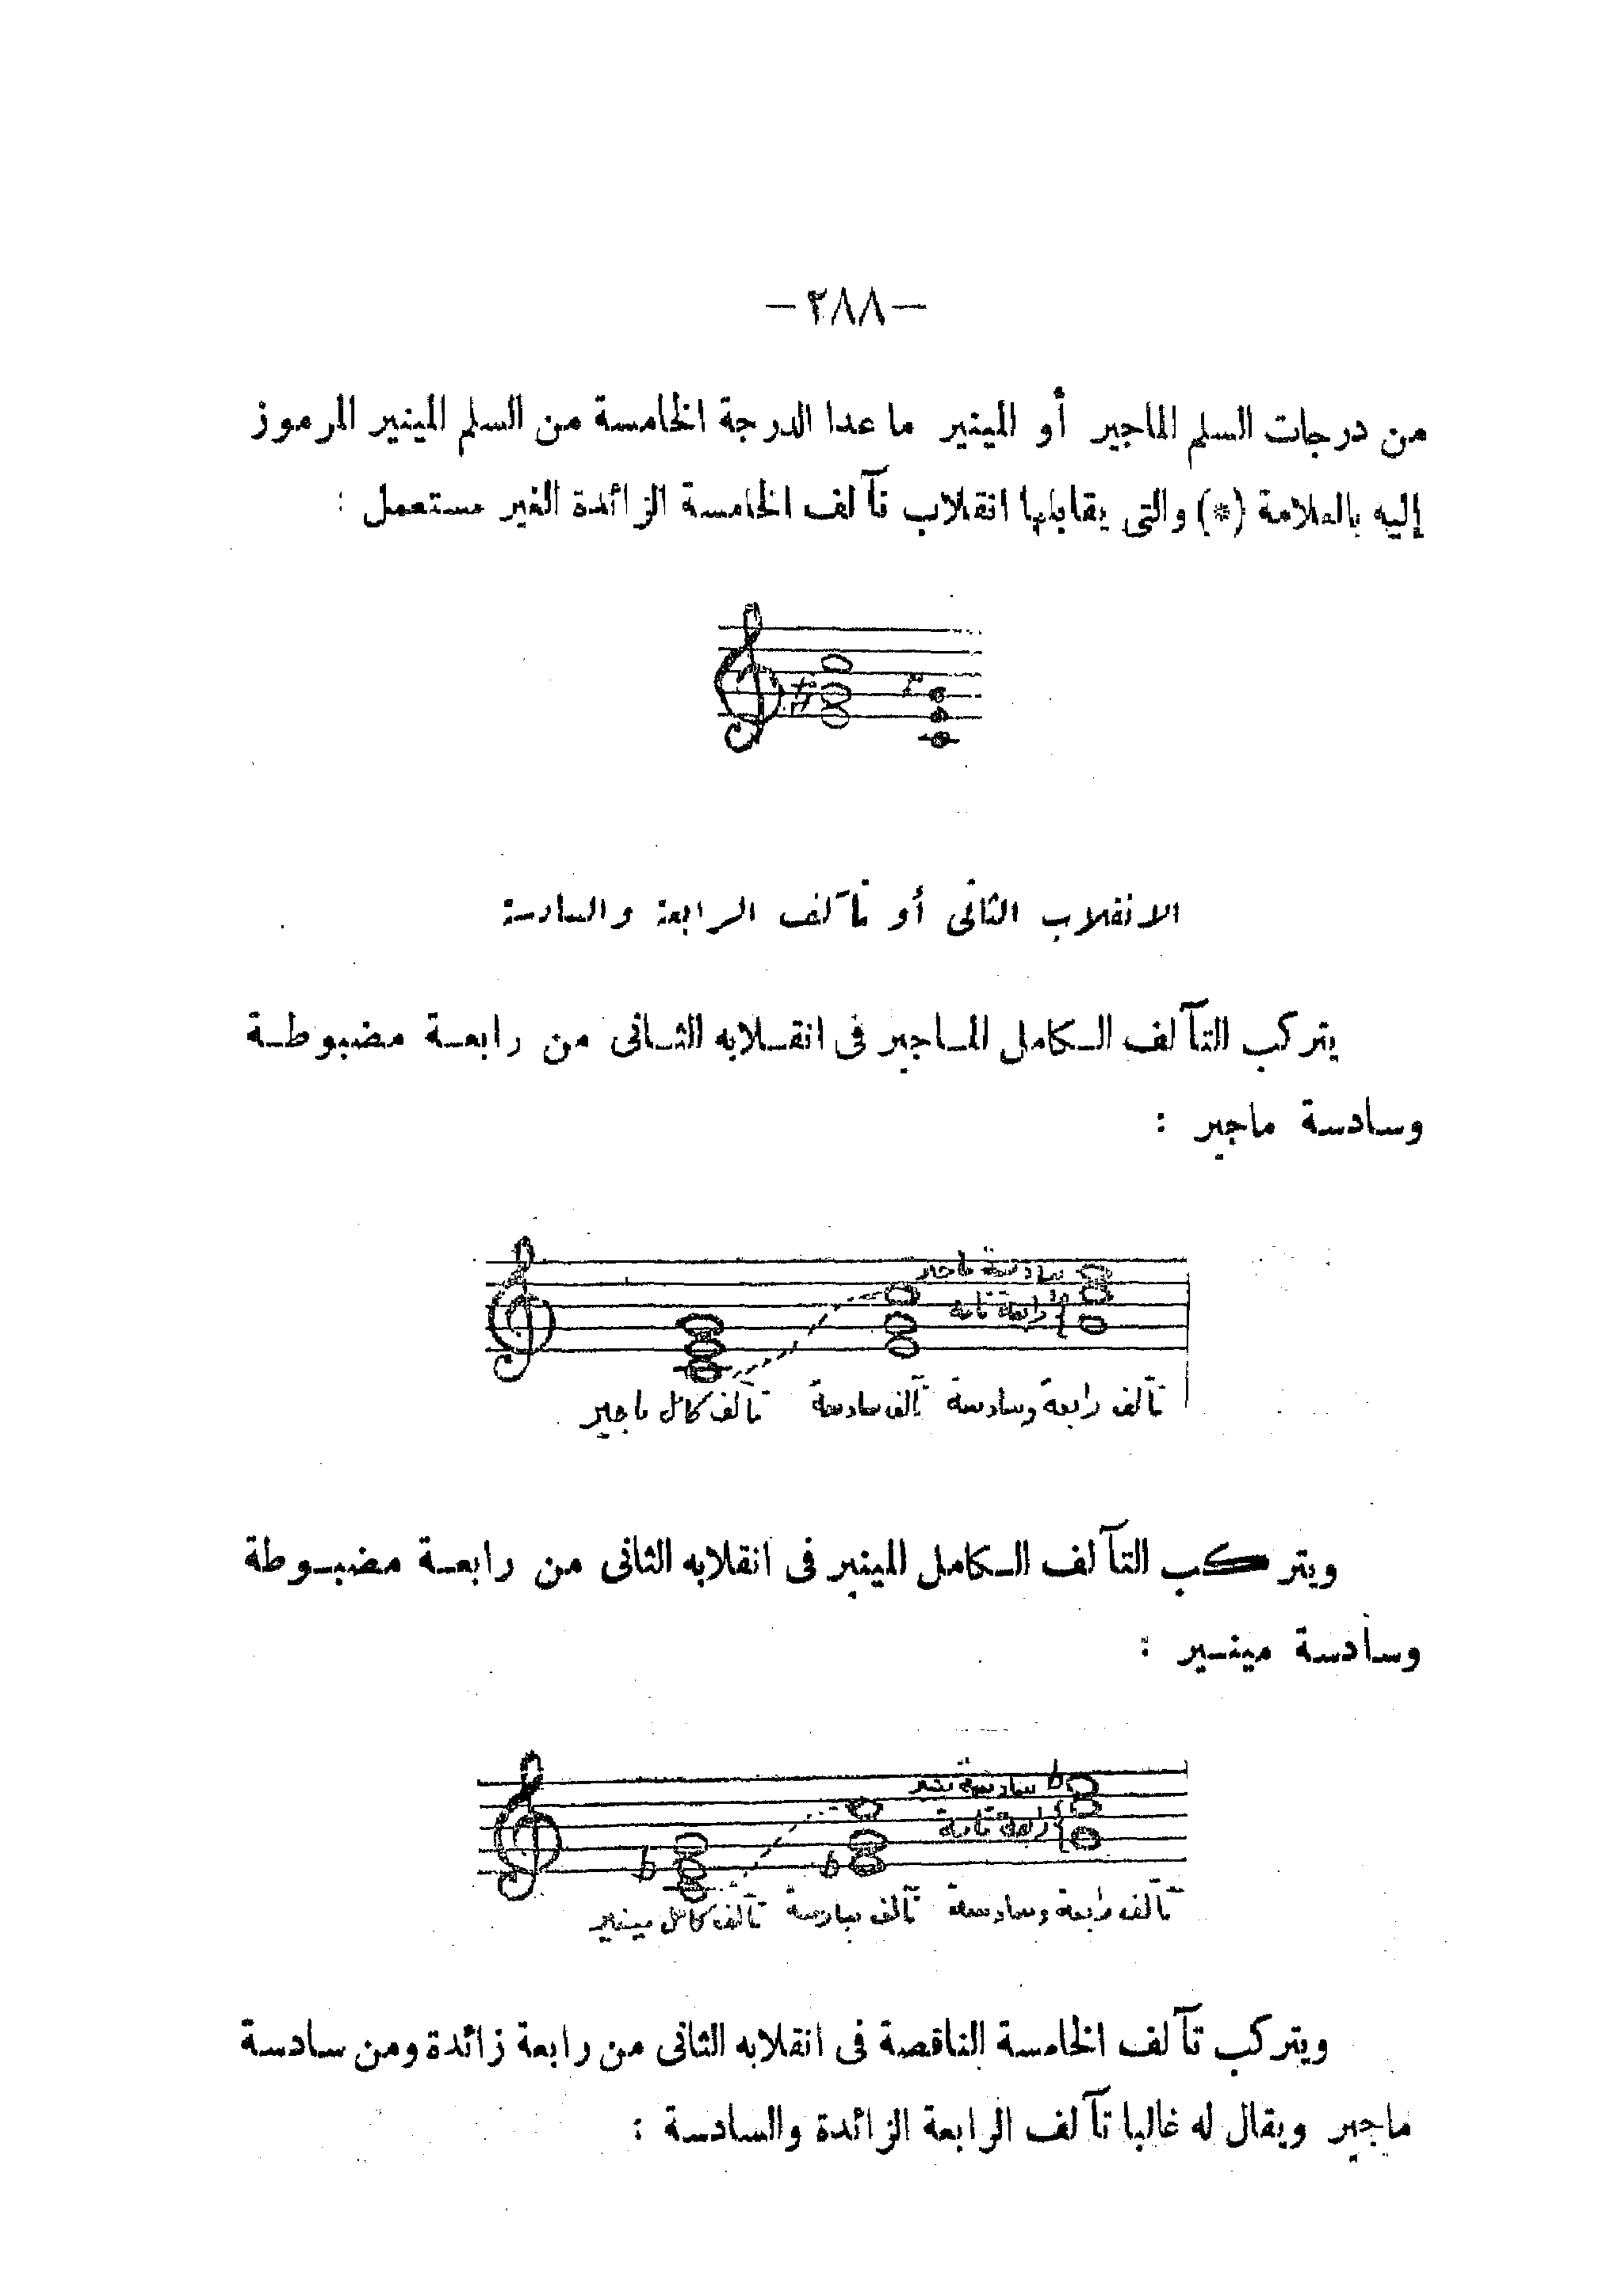 —٢٨٨—
من درجات السلم الماجير أو المينير ما عدا الدرجة الخامسة من السلم المينير المرموز
إليه بالعلامة (*) والتى يقابلها انقلاب تآلف الخامسة الزائدة الغير مستعمل :
الانقلاب الثانى أو تآلف الرابعة والسادسة
يتركب التآلف الكامل الماجير فى انقلابه الثانى من رابعة مضبوطة
وسادسة ماجير :
سادسة ماجير
رابعة تامة
تآلف رابعة وسادسة تآلف سادسة تآلف كامل ماجير
ويتركب التآلف الكامل المينير فى انقلابه الثانى من رابعة مضبوطة
وسادسة مينير :
سادسة
رابعة تامة
تآلف رابعة وسادسة تآلف سادسة تآلف كامل مينير
ويتركب تآلف الخامسة الناقصة فى انقلابه الثانى من رابعة زائدة ومن سادسة
ماجير ويقال له غالبا تآلف الرابعة الزائدة والسادسة :